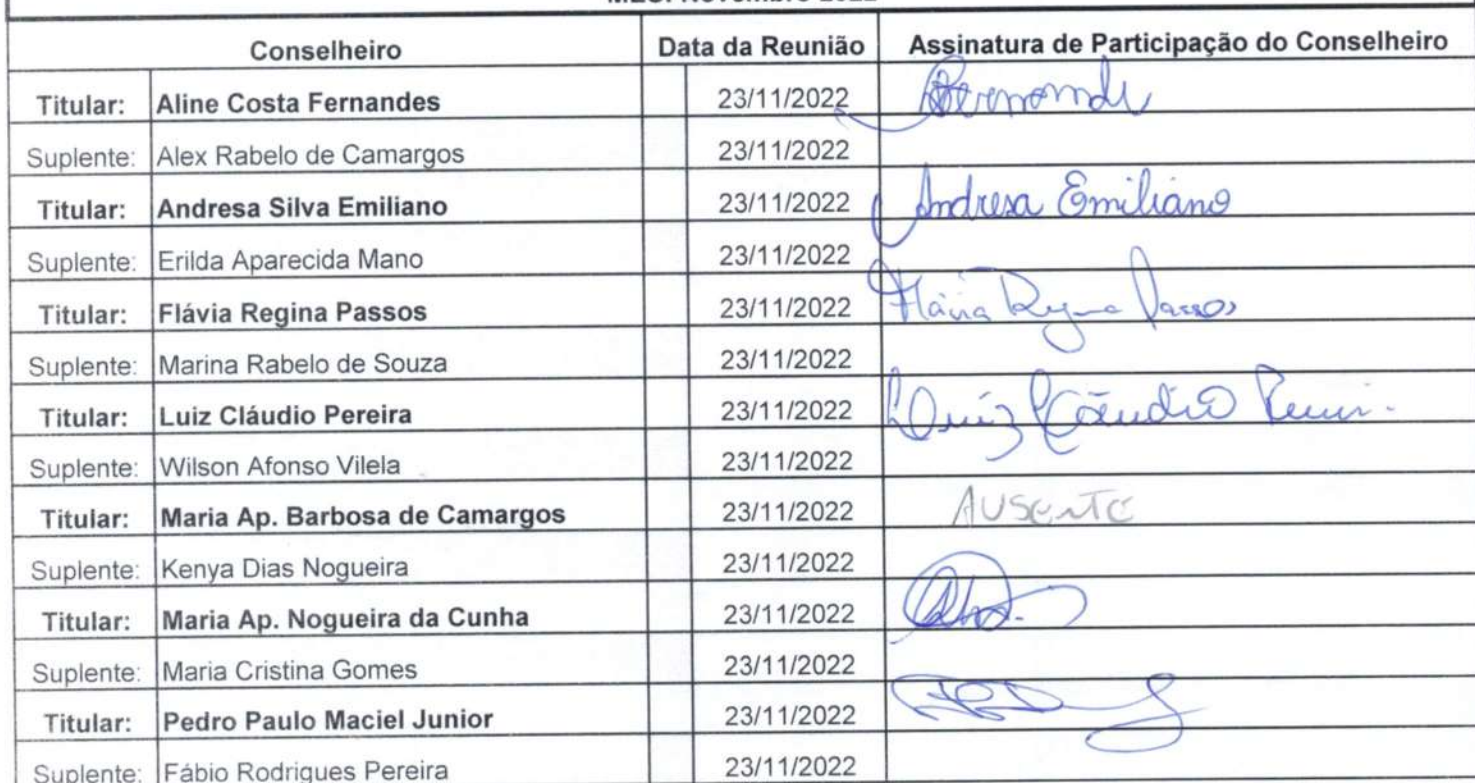 Conselheiro Data da Reunião Assinatura de Participação do Conselheiro
Titular: Aline Costa Fernandes 23/11/2022
Suplente: Alex Rabelo de Camargos 23/11/2022
Titular: Andresa Silva Emiliano 23/11/2022 Andresa Emiliano
Suplente: Erilda Aparecida Mano 23/11/2022
Titular: Flávia Regina Passos 23/11/2022 Flávia Regina Passos
Suplente: Marina Rabelo de Souza 23/11/2022
Titular: Luiz Cláudio Pereira 23/11/2022 Luiz Cláudio
Suplente: Wilson Afonso Vilela 23/11/2022
Titular: Maria Ap. Barbosa de Camargos 23/11/2022 AUSENTE
Suplente: Kenya Dias Nogueira 23/11/2022
Titular: Maria Ap. Nogueira da Cunha 23/11/2022
Suplente: Maria Cristina Gomes 23/11/2022
Titular: Pedro Paulo Maciel Junior 23/11/2022
Suplente: Fábio Rodrigues Pereira 23/11/2022